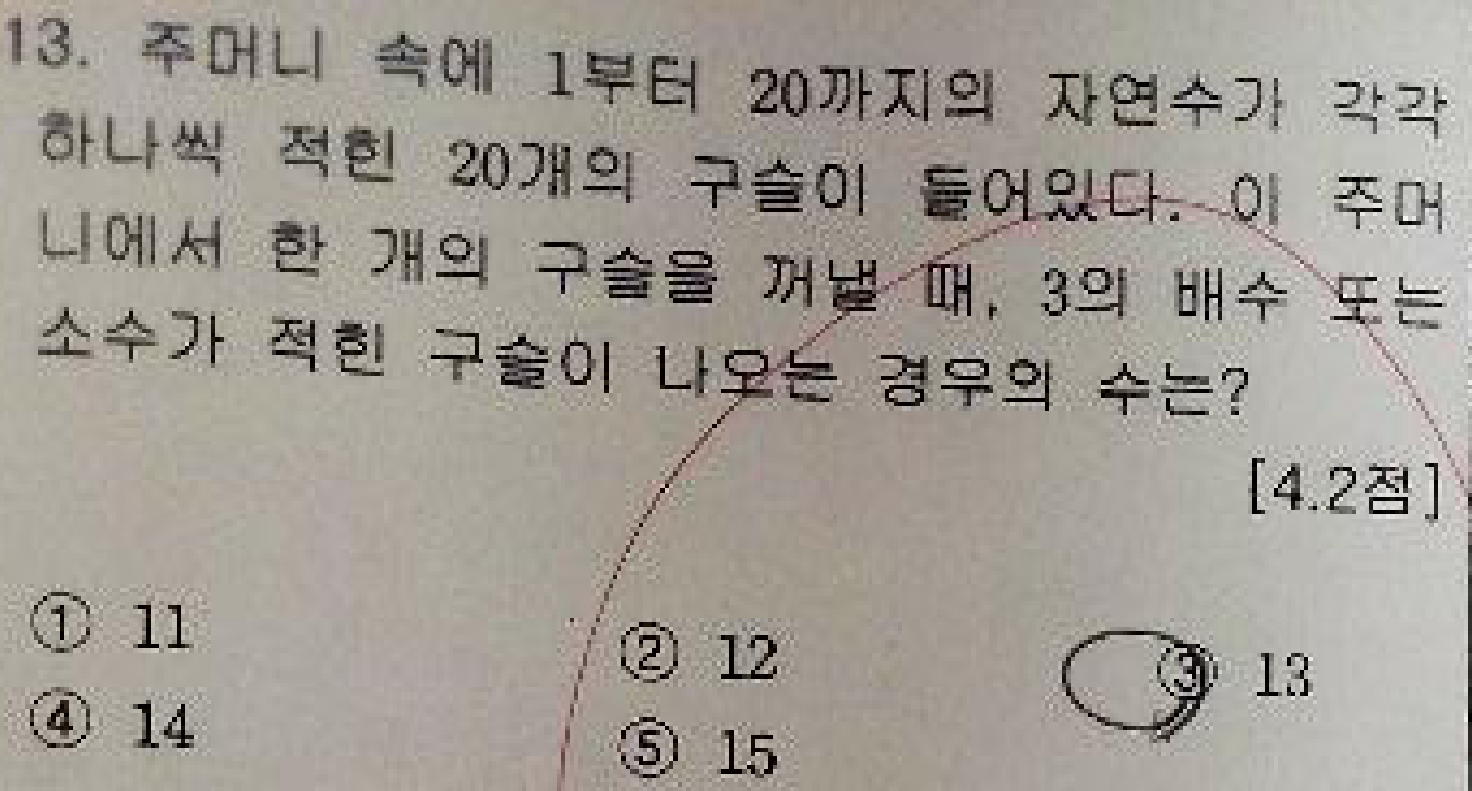 13. 주머니 속에 1부터 20까지의 자연수가 각각
하나씩 적힌 20개의 구슬이 들어있다. 이 주머
니에서 한 개의 구슬을 꺼낼 때, 3의 배수 또는
소수가 적힌 구슬이 나오는 경우의 수는?
[4.2점]
① 11 ② 12 ③ 13
④ 14 ⑤ 15